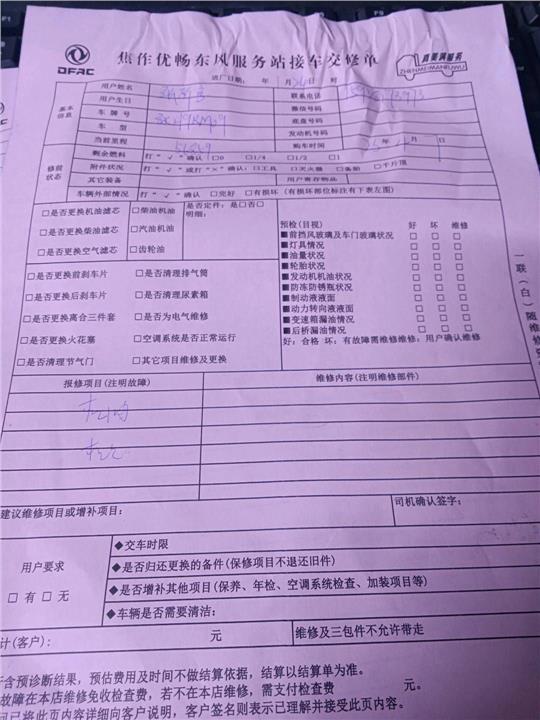 DFAC
焦作优畅东风服务站接车交修单
真美满服务
ZHENMEIMANFUWU
进厂日期: 年 月 日 时
基本信息
用户姓名
联系电话
用户生日
微信号码
车牌号
底盘号码
车型
发动机号码
当前里程
购车时间 年 月 日
修前状态
剩余燃料 打"√"确认 □0 □1/4 □1/2 □1
附件状况 打"√"或打"×"确认:□工具 □灭火器 □备胎 □千斤顶
其它装备
用户寄存物品
车辆外部情况 打"√"确认 □完好 □有损坏(有损坏部位标注有下表左图)
□是否更换机油滤芯 □柴油机油
□是否更换柴油滤芯 □汽油机油
□是否更换空气滤芯 □齿轮油
是否定件:是□否□
明细:
□是否更换前刹车片 □是否清理排气筒
□是否更换后刹车片 □是否清理尿素箱
□是否更换离合三件套 □是否为电气维修
□是否更换火花塞 □空调系统是否正常运行
□是否清理节气门 □其它项目维修及更换
预检(目视) 好 坏 维修
■前挡风玻璃及车门玻璃状况 □ □ □
■灯具情况 □ □ □
■油量状况 □ □ □
■轮胎状况 □ □ □
■发动机机油状况 □ □ □
■防冻防锈瓶状况 □ □ □
■制动液液面 □ □ □
■动力转向液液面 □ □ □
■变速箱漏油情况 □ □ □
■后桥漏油情况 □ □ □
好:合格 坏:有故障需维修维修:用户确认维修
一联(白)随维修
报修项目(注明故障)
维修内容(注明维修部件)
建议维修项目或增补项目:
司机确认签字:
用户要求
□有□无
◆交车时限
◆是否归还更换的备件(保修项目不退还旧件)
◆是否增补其他项目(保养、年检、空调系统检查、加装项目等)
◆车辆是否需要清洁:
计(客户): 元
维修及三包件不允许带走
含预诊断结果,预估费用及时间不做结算依据,结算以结算单为准。
故障在本店维修免收检查费,若不在本店维修,需支付检查费 元。
已将此页内容详细向客户说明,客户签名则表示已理解并接受此页内容。